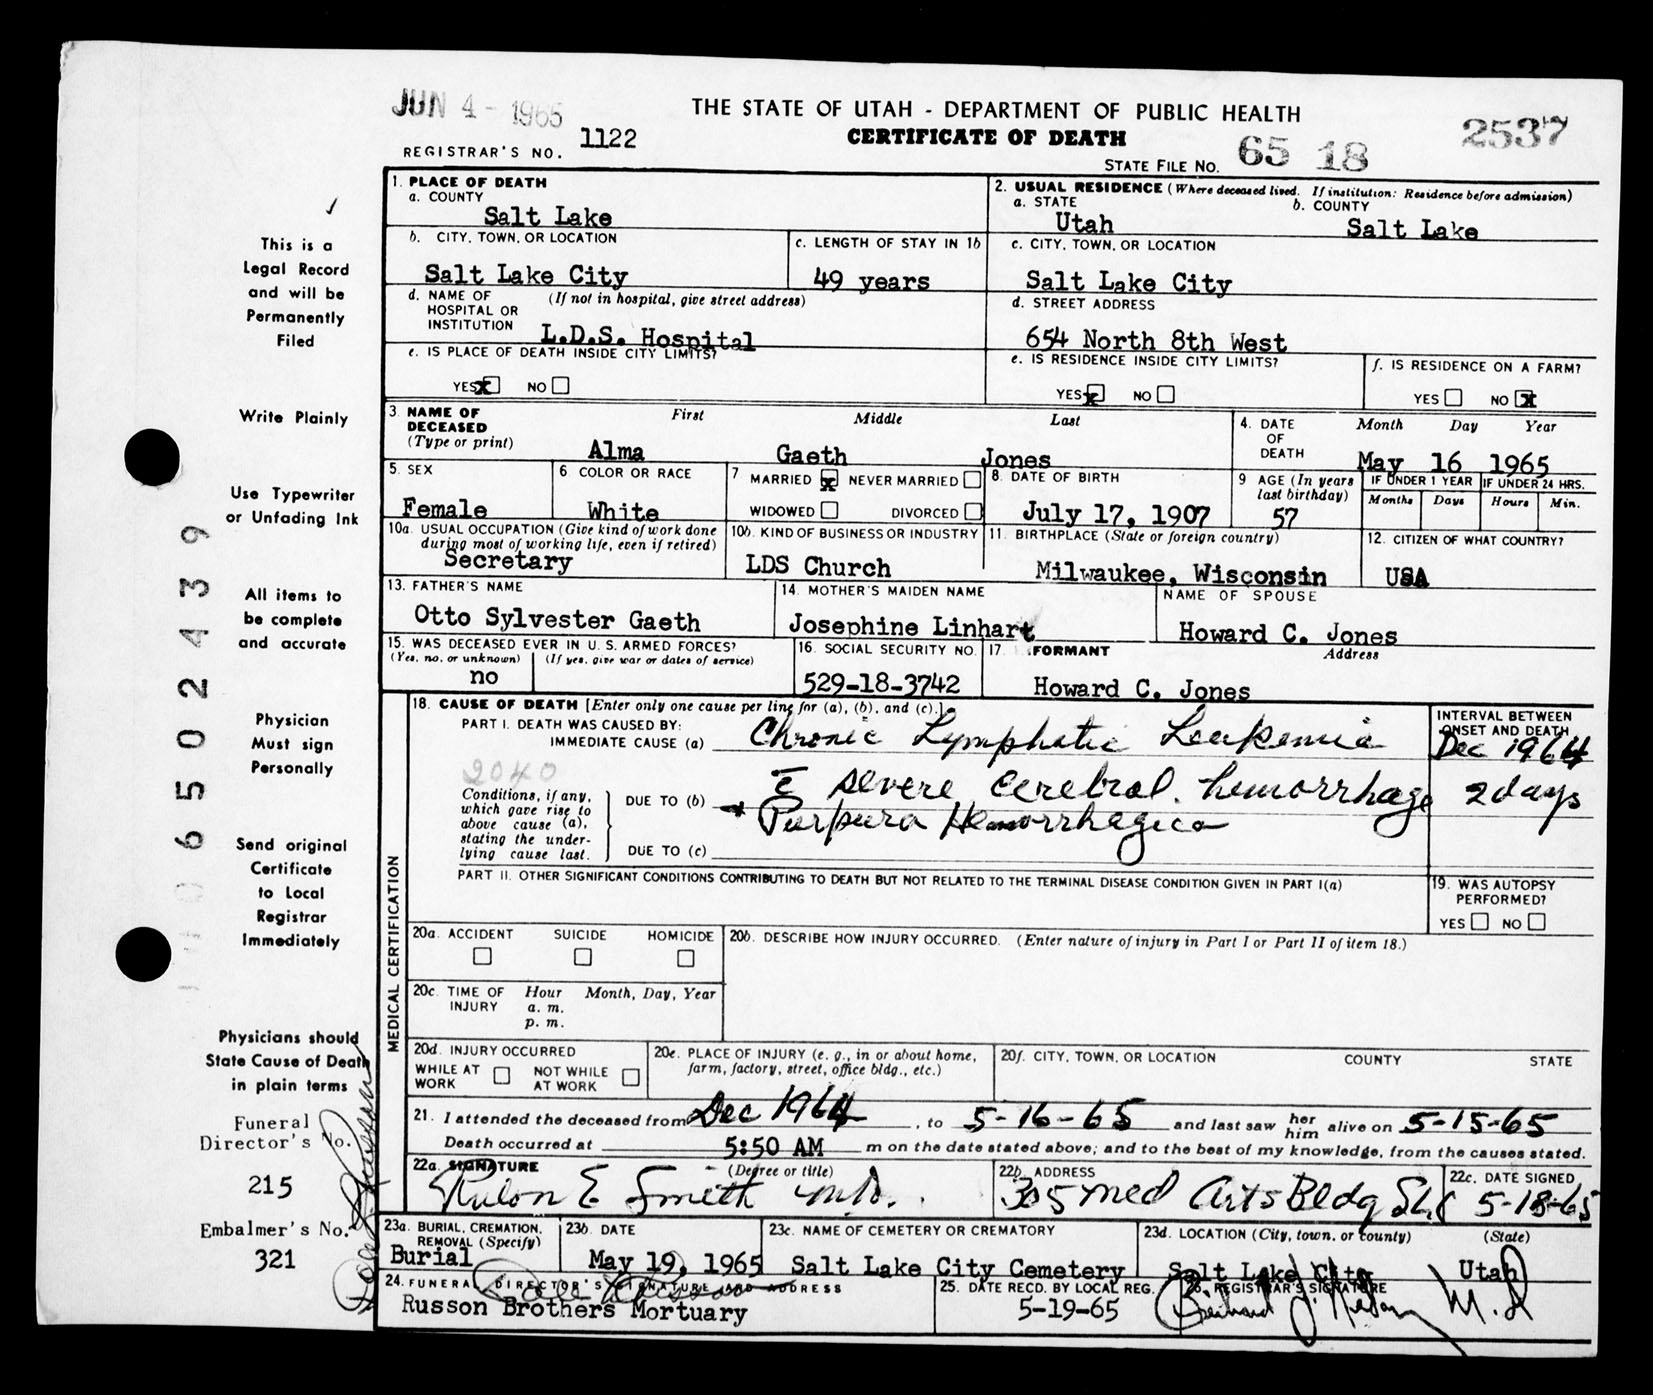 JUN 4 - 1965
THE STATE OF UTAH - DEPARTMENT OF PUBLIC HEALTH
CERTIFICATE OF DEATH
REGISTRAR'S NO. 1122
STATE FILE NO. 65 18 2537
This is a
Legal Record
and will be
Permanently
Filed
Write Plainly
Use Typewriter
or Unfading Ink
All items to
be complete
and accurate
Physician
Must sign
Personally
Send original
Certificate
to Local
Registrar
Immediately
Physicians should
State Cause of Death
in plain terms
Funeral
Director's No.
215
Embalmer's No.
321
06502439
1. PLACE OF DEATH
a. COUNTY
Salt Lake
2. USUAL RESIDENCE (Where deceased lived. If institution: Residence before admission)
a. STATE b. COUNTY
Utah Salt Lake
b. CITY, TOWN, OR LOCATION
Salt Lake City
c. LENGTH OF STAY IN 1b
49 years
c. CITY, TOWN, OR LOCATION
Salt Lake City
d. NAME OF (If not in hospital, give street address)
HOSPITAL OR
INSTITUTION L.D.S. Hospital
d. STREET ADDRESS
654 North 8th West
e. IS PLACE OF DEATH INSIDE CITY LIMITS?
YES x NO
e. IS RESIDENCE INSIDE CITY LIMITS?
YES x NO
f. IS RESIDENCE ON A FARM?
YES NO x
3. NAME OF First Middle Last
DECEASED
(Type or print) Alma Gaeth Jones
4. DATE Month Day Year
OF
DEATH May 16 1965
5. SEX
Female
6 COLOR OR RACE
White
7 MARRIED x NEVER MARRIED
WIDOWED DIVORCED
8. DATE OF BIRTH
July 17, 1907
9 AGE (In years
last birthday)
57
IF UNDER 1 YEAR IF UNDER 24 HRS.
Months Days Hours Min.
10a. USUAL OCCUPATION (Give kind of work done
during most of working life, even if retired)
Secretary
10b. KIND OF BUSINESS OR INDUSTRY
LDS Church
11. BIRTHPLACE (State or foreign country)
Milwaukee, Wisconsin
12. CITIZEN OF WHAT COUNTRY?
USA
13. FATHER'S NAME
Otto Sylvester Gaeth
14. MOTHER'S MAIDEN NAME
Josephine Linhart
NAME OF SPOUSE
Howard C. Jones
15. WAS DECEASED EVER IN U.S. ARMED FORCES?
(Yes, no, or unknown) (If yes, give war or dates of service)
no
16. SOCIAL SECURITY NO.
529-18-3742
17. FORMANT Address
Howard C. Jones
MEDICAL CERTIFICATION
18. CAUSE OF DEATH [Enter only one cause per line for (a), (b), and (c).]
PART I. DEATH WAS CAUSED BY:
IMMEDIATE CAUSE (a) Chronic Lymphatic Leukemia
INTERVAL BETWEEN
ONSET AND DEATH
Dec 1964
2040
Conditions, if any,
which gave rise to
above cause (a),
stating the under-
lying cause last.
DUE TO (b) c̄ severe cerebral hemorrhage 2 days
Purpura Hemorrhagica
DUE TO (c)
PART II. OTHER SIGNIFICANT CONDITIONS CONTRIBUTING TO DEATH BUT NOT RELATED TO THE TERMINAL DISEASE CONDITION GIVEN IN PART I(a)
19. WAS AUTOPSY
PERFORMED?
YES NO
20a. ACCIDENT SUICIDE HOMICIDE
20b. DESCRIBE HOW INJURY OCCURRED. (Enter nature of injury in Part I or Part II of item 18.)
20c. TIME OF Hour Month, Day, Year
INJURY a. m.
p. m.
20d. INJURY OCCURRED
WHILE AT WORK NOT WHILE AT WORK
20e. PLACE OF INJURY (e. g., in or about home,
farm, factory, street, office bldg., etc.)
20f. CITY, TOWN, OR LOCATION COUNTY STATE
21. I attended the deceased from Dec 1964, to 5-16-65 and last saw her him alive on 5-15-65
Death occurred at 5:50 AM m on the date stated above; and to the best of my knowledge, from the causes stated.
22a. SIGNATURE (Degree or title)
Rulon E Smith M.D.
22b. ADDRESS
305 Med Arts Bldg SLC
22c. DATE SIGNED
5-18-65
23a. BURIAL, CREMATION,
REMOVAL (Specify)
Burial
23b. DATE
May 19, 1965
23c. NAME OF CEMETERY OR CREMATORY
Salt Lake City Cemetery
23d. LOCATION (City, town, or county) (State)
Salt Lake City Utah
24. FUNERAL DIRECTOR'S SIGNATURE AND ADDRESS
Russon Brothers Mortuary
25. DATE RECD. BY LOCAL REG.
5-19-65
26. REGISTRAR'S SIGNATURE
M.D